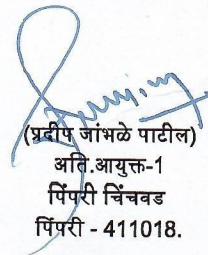 (प्रदीप जांभळे पाटील)
अति.आयुक्त-1
पिंपरी चिंचवड
पिंपरी - 411018.